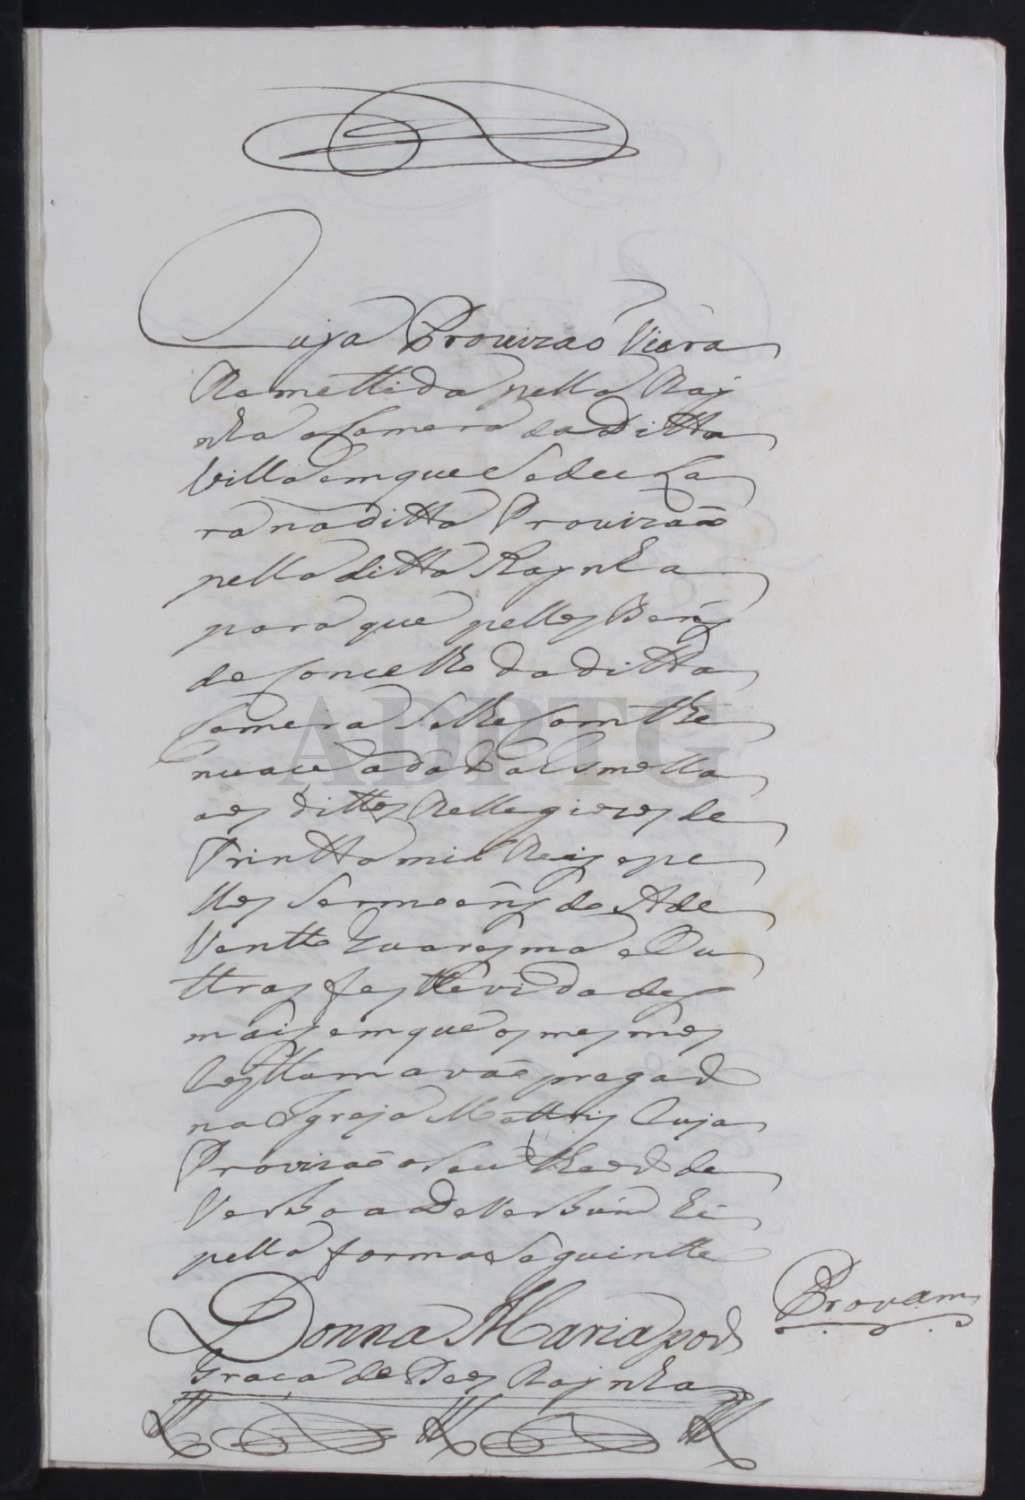 Cuja Provizaó Viera
Remettida pella Raỹ
nha a Camera da Ditta
Villa em que Se decLa
ra na ditta Provizaó
pella ditta Raynha
para que pellos Bens
de Concelho da ditta
Camera Se lhe Com the
nuace dada Esmolla
aos dittos Rellegiozos de
Trintta mil Reis pe
llos Sermoens do Ade
Vento Quaresma e Ou
ttras festtevidades
mais em que os mesmos
Costtumavaó pregar
na Igreja Mattris Cuja
Provizaó o Seu theor de
Verbo a DeVerbum hé
pella forma Seguintte
Donna Maria por
Graça de Deos Raynha
Provam
ADPTG